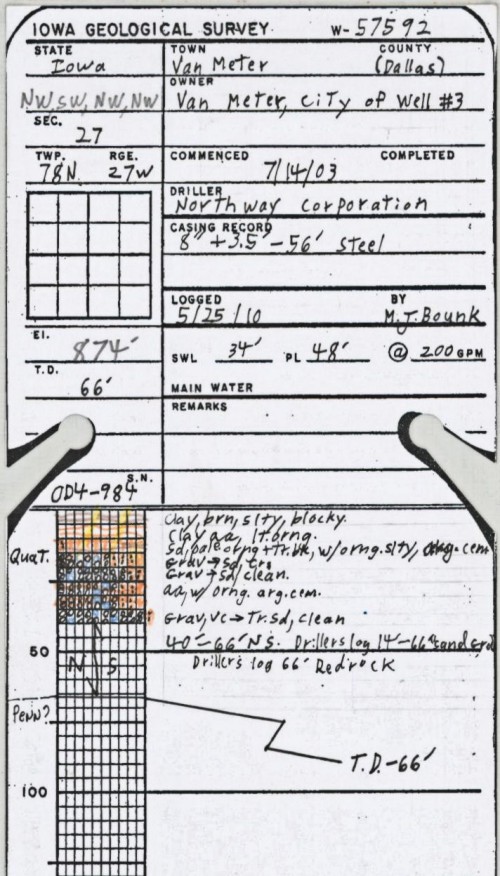 IOWA GEOLOGICAL SURVEY W-57592
STATE TOWN COUNTY
Iowa Van Meter (Dallas)
OWNER
NW, SW, NW, NW Van Meter, City of Well #3
SEC.
27
TWP. RGE. COMMENCED COMPLETED
78N. 27W 7/14/03
DRILLER
Northway Corporation
CASING RECORD
8" +3.5' - 56' Steel
LOGGED BY
5/25/10 M.J. Bounk
El. 874' SWL 34' PL 48' @ 200 GPM
T.D.
66' MAIN WATER
REMARKS
S.N.
OD4-984
Clay, brn, slty, blocky.
Clay aa, lt. orng.
Sd, pale orng + Tr. bk, w/orng. slty, arg. cem
Quat. Grav → sd,
Grav → Sd, clean.
aa, w/ orng. arg. cem.
Grav, vc → Tr. sd, clean
40'-66' NS. Drillers log 14'-66' sand & 
50 Drillers log 66' Redrock
N S
Penn?
T.D.-66'
100